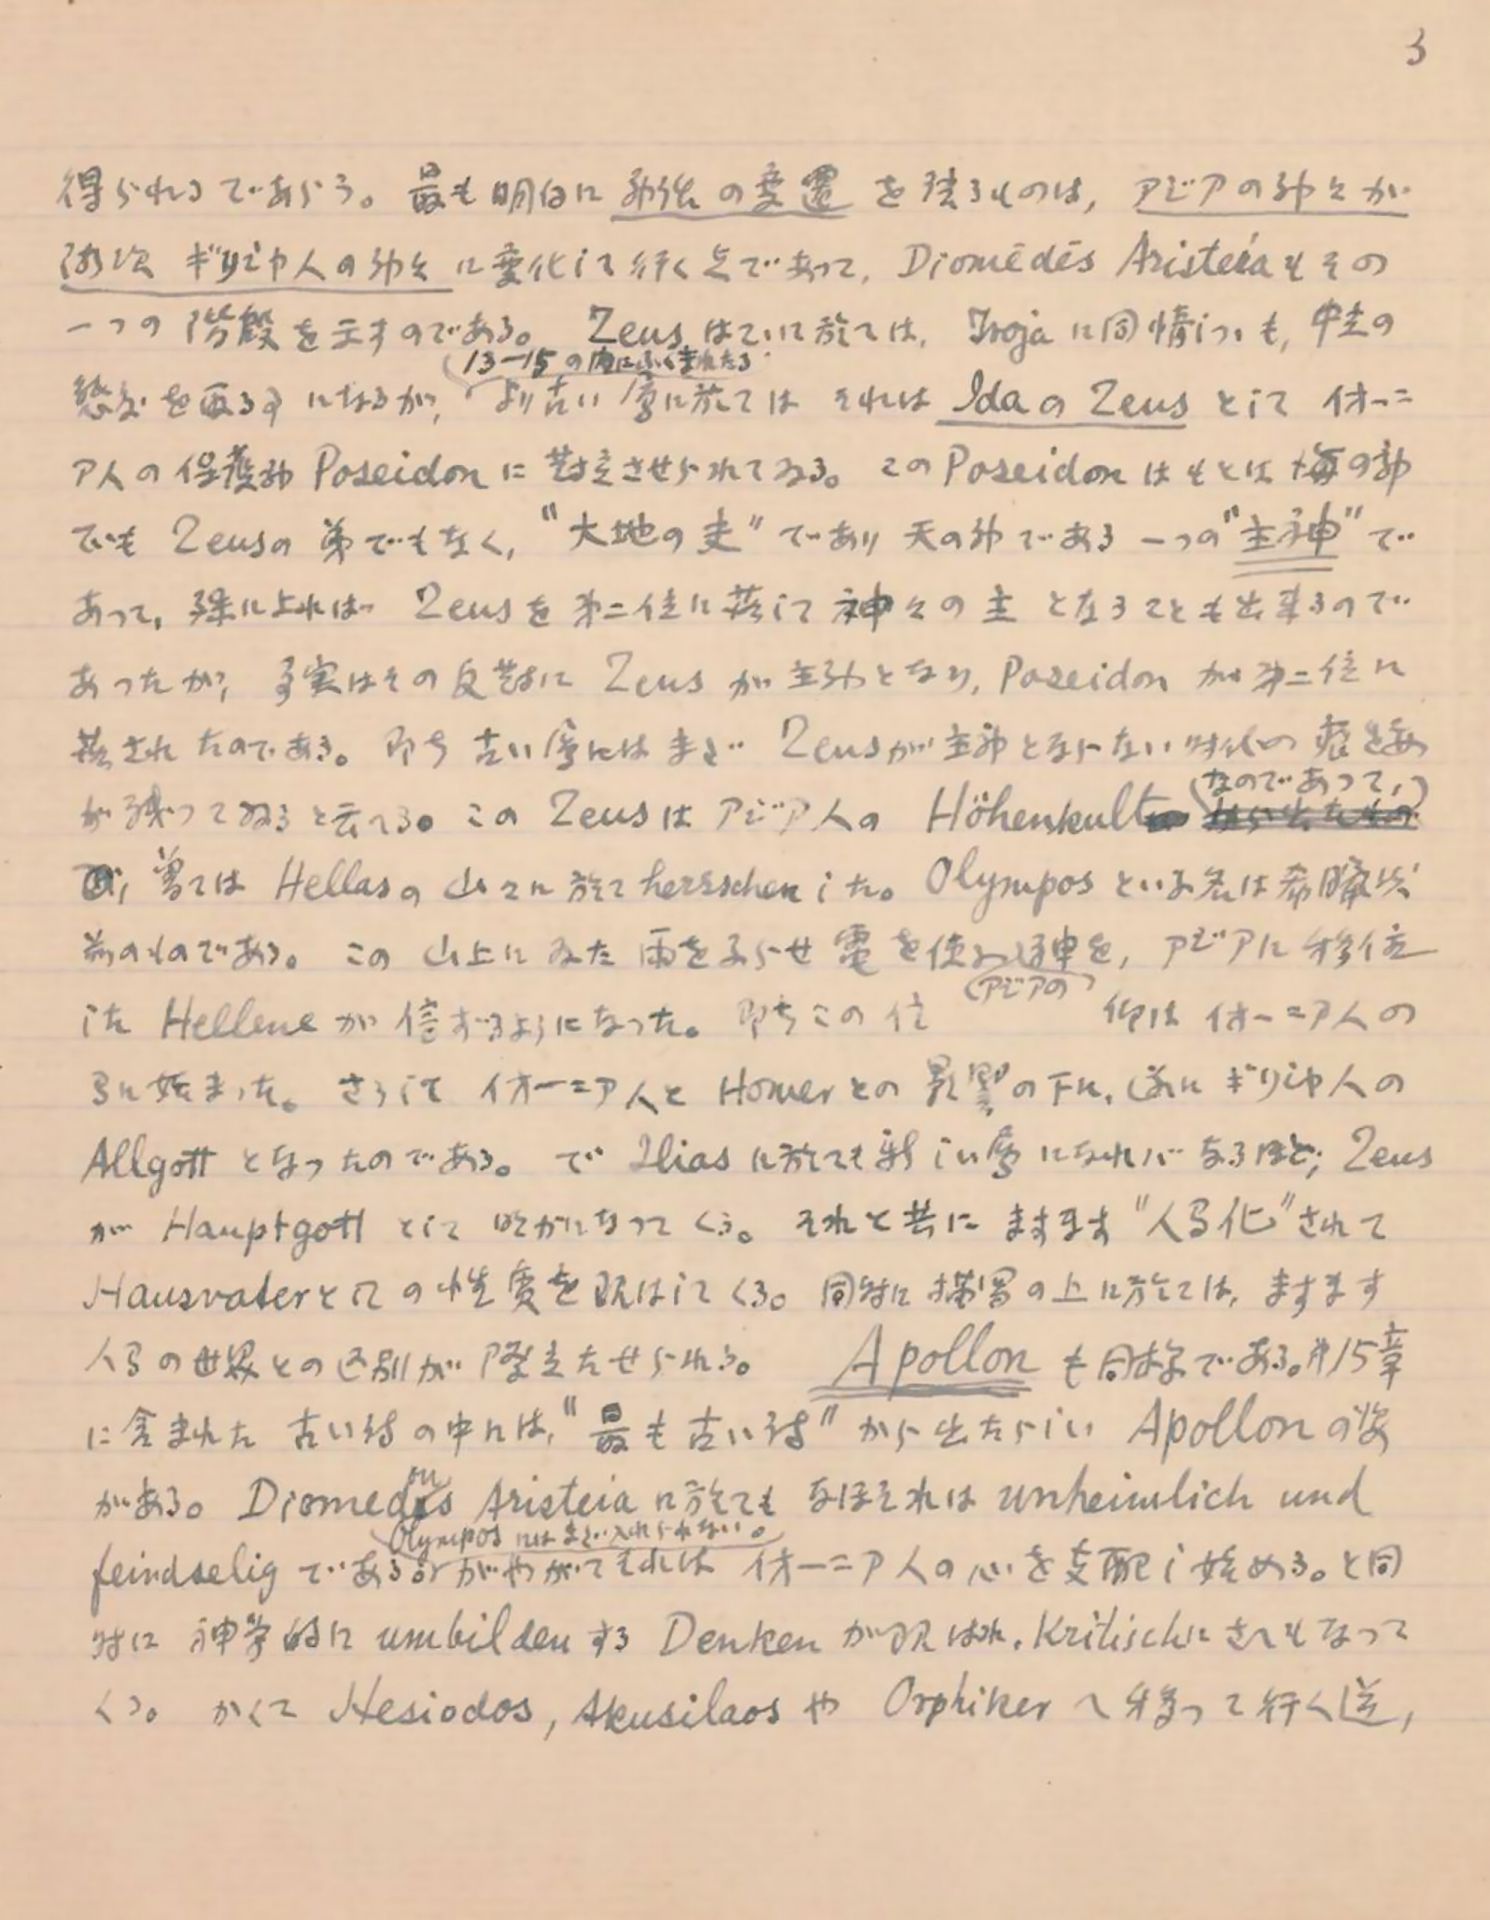 3
得られるであらう。最も明白に神話の変遷を語るものは、アジアの神々が
漸次ギリシヤ人の神々に変化して行く点であつて、Diomēdēs Aristeiaもその
一つの階段を示すのである。Zeusはこゝに於ては、Trojaに同情しつゝも、中立の
態度を取る事になるが、(13—15の内にふくまれたる)より古い層に於てはそれはIdaのZeusとしてイオーニ
ア人の保護神Poseidonに対立させられてゐる。このPoseidonはもとは海の神
でもZeusの弟でもなく、"大地の夫"であり天の神である一つの"主神"で
あつて、Zeusを第二位に落して神々の主となることも出来るので
あつたが、事実はその反対にZeusが主神となり、Poseidonが第二位に
落されたのである。即ち古い層にはまだZeusが主神とならない時代の痕跡
が残つてゐると云へる。このZeusはアジア人のHöhenkult(なのであつて、)
曾てはHellasの山々に於てherrschenした。Olymposといふ名は希臘以
前のものである。この山上にゐた雨をふらせ電を使ふ(アジアの)神を、アジアに移住
したHelleneが信ずるようになつた。即ちこの信仰はイオーニア人の
間に始まつた。さうしてイオーニア人とHomerとの影響の下に、遂にギリシヤ人の
Allgottとなつたのである。でIliasに於ても新しい層になればなるほど、Zeus
がHauptgottとして明かになつてくる。それと共にますます"人間化"されて
Hausvaterとしての性質を現はしてくる。同時に描写の上に於ては、ますます
人間の世界との区別が際立たせられる。Apollonも同様である。第15章
に含まれた古い詩の中には、"最も古い詩"から出たらしいApollonの姿
がある。Diomedou Aristeiaに於てもなほそれはunheimlich und
feindseligである。(Olymposにはまだ入れられない。)がやがてそれはイオーニア人の心を支配し始める。と同
時に神学的にumbildenするDenkenが現はれ、Kritischにさへもなつて
くる。かくてHesiodos, AkusilaosやOrphikerへ移つて行く道,